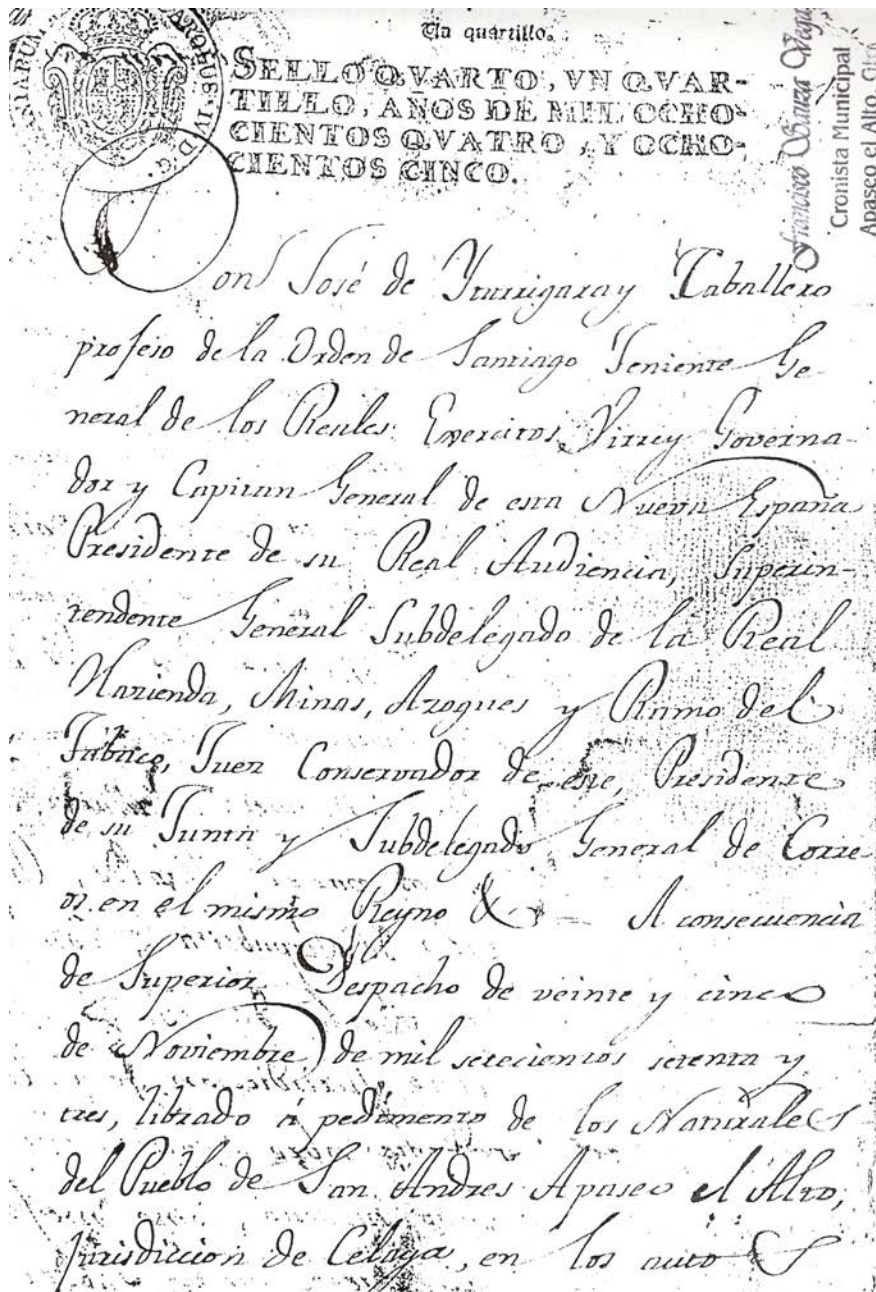 Un quartillo.
SELLO QVARTO, VN QVAR-
TILLO, AÑOS DE MIL OCHO-
CIENTOS QVATRO, Y OCHO-
CIENTOS CINCO.
Francisco Sauza Vega
Cronista Municipal
Apaseo el Alto, Gto.
Don José de Yturrigaray Caballero
profeso de la Orden de Santiago Teniente Ge-
neral de los Reales Exercitos, Virrey Governa-
dor y Capitan General de esta Nueva España
Presidente de su Real Audiencia, Superin-
tendente General Subdelegado de la Real
Hazienda, Minas, Azogues y Ramo del
Tabaco, Juez Conservador de este, Presidente
de su Junta y Subdelegado General de Corre-
os en el mismo Reyno & = A consecuencia
de Superior Despacho de veinte y cinco
de Noviembre de mil setecientos setenta y
tres, librado á pedimento de los Naturales
del Pueblo de San Andres Apaseo el Alto,
jurisdiccion de Celaya, en los autos